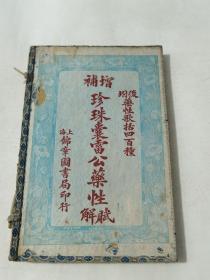 增補
後附藥性歌括四百種
珍珠囊雷公藥性賦解
上海錦章圖書局印行